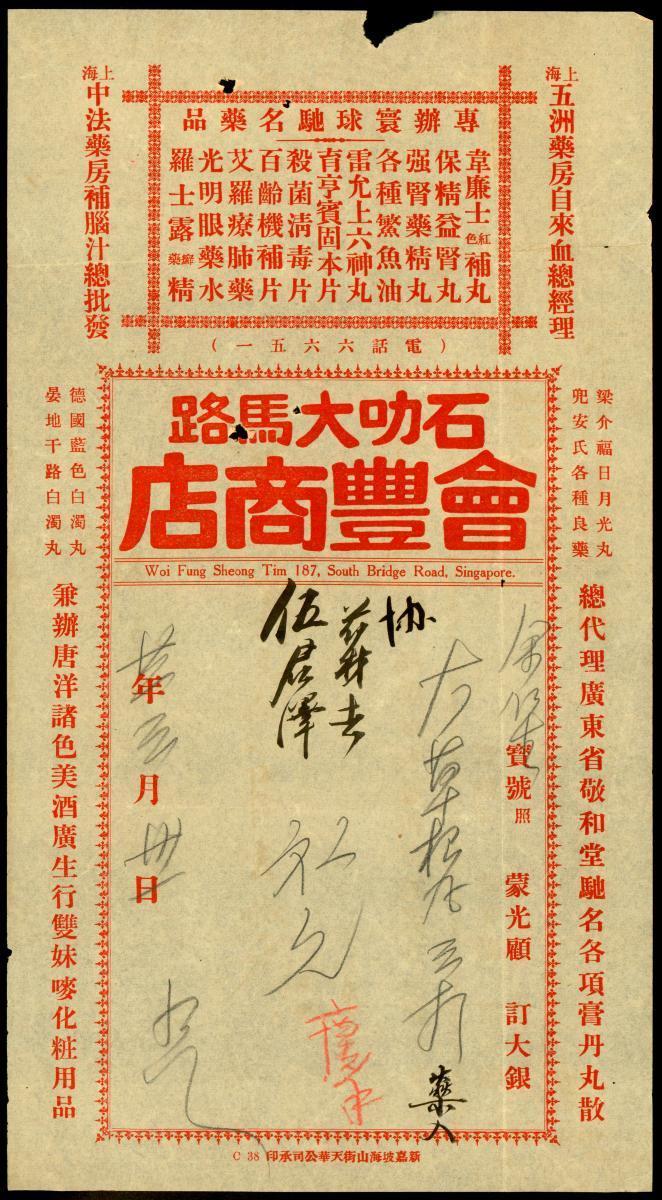 上海五洲藥房自來血總經理
專辦寰球馳名藥品
韋廉士紅色補丸
保精益腎丸
強腎藥精丸
各種鰵魚油
雷允上六神丸
育亨賓固本片
殺菌清毒片
百齡機補片
艾羅療肺藥
光明眼藥水
羅士露癬藥精
上海中法藥房補腦汁總批發
（電話六六五一）
梁介福日月光丸
兜安氏各種良藥
總代理廣東省敬和堂馳名各項膏丹丸散
石叻大馬路
會豐商店
Woi Fung Sheong Tim 187, South Bridge Road, Singapore.
德國藍色白濁丸
晏地干路白濁丸
兼辦唐洋諸色美酒廣生行雙妹嘜化粧用品
寶號照 蒙光顧 訂大銀
藥入
協
伍君澤
年 月 卅 日
新嘉坡海山街天華公司承印 C 38